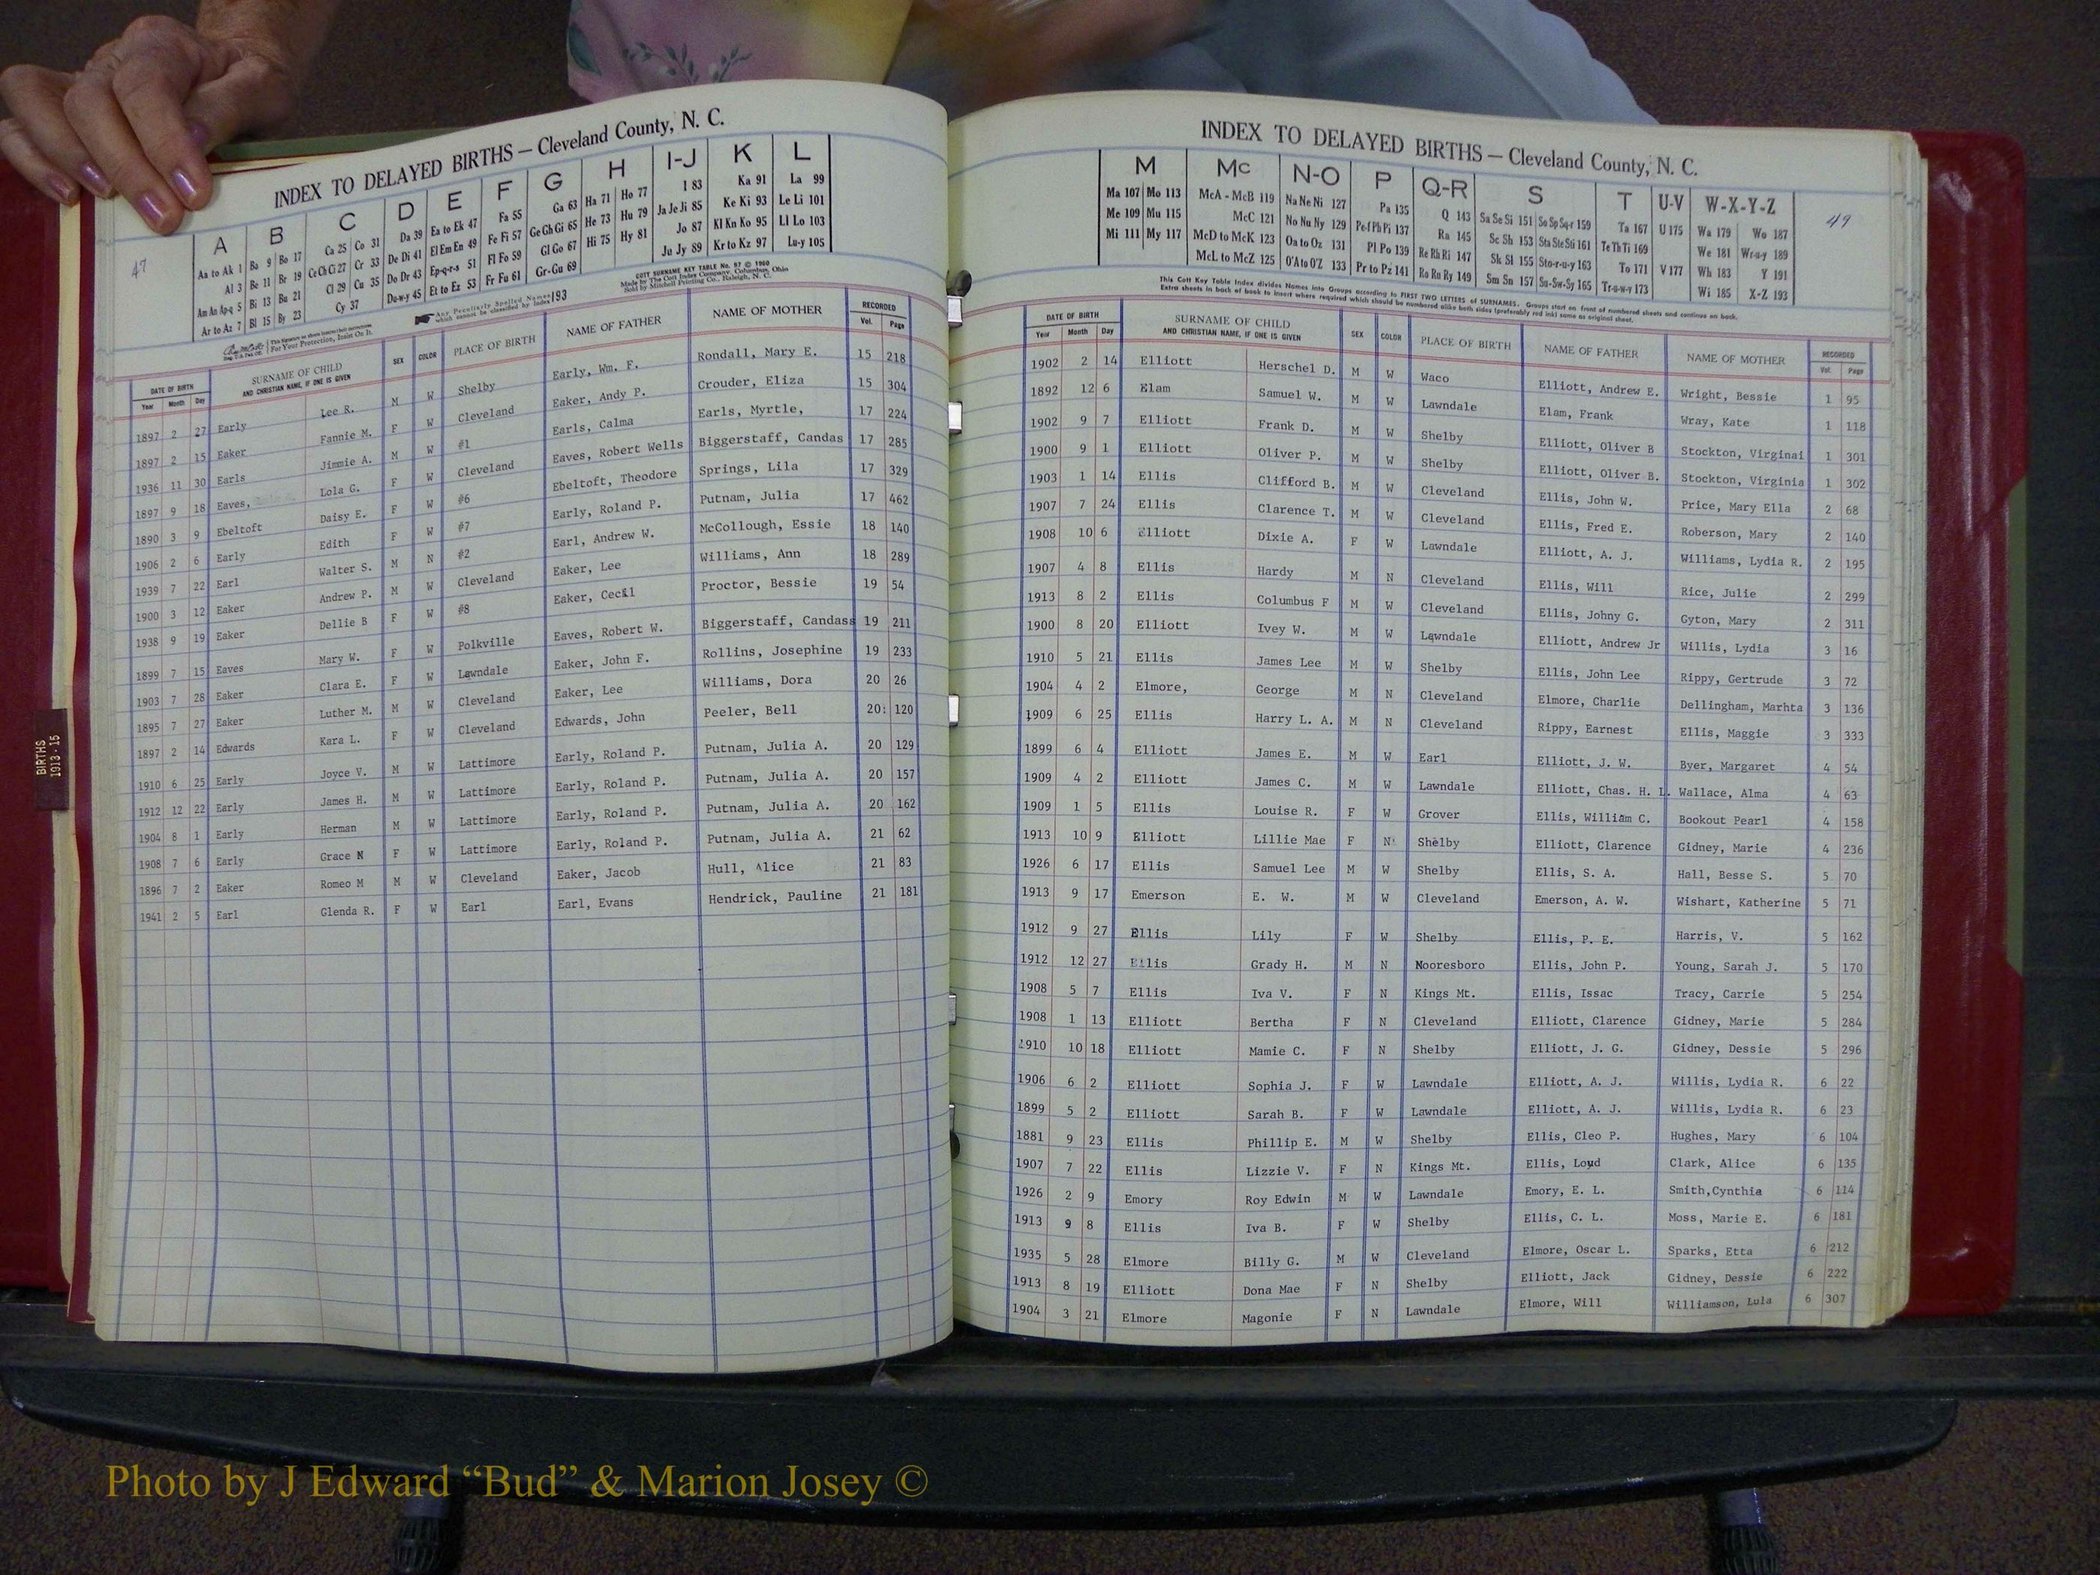 INDEX TO DELAYED BIRTHS — Cleveland County, N. C.
47
A B C D E F G H I-J K L
Aa to Ak 1 Ba 9 Bo 17 Ca 25 Co 31 Da 39 Ea to Ek 47 Fa 55 Ga 63 Ha 71 Ho 77 I 83 Ka 91 La 99
Al 3 Be 11 Br 19 Ce Ch Ci 27 Cr 33 De Di 41 El Em En 49 Fe Fi 57 Ge Gh Gi 65 He 73 Hu 79 Ja Je Ji 85 Ke Ki 93 Le Li 101
Am An Ap-q 5 Bi 13 Bu 21 Cl 29 Cu 35 Do Dr 43 Ep-q-r-s 51 Fl Fo 59 Gl Go 67 Hi 75 Hy 81 Jo 87 Kl Kn Ko 95 Ll Lo 103
Ar to Az 7 Bl 15 By 23 Cy 37 Du-w-y 45 Et to Ez 53 Fr Fu 61 Gr-Gu 69 Ju Jy 89 Kr to Kz 97 Lu-y 105
COTT SURNAME KEY TABLE No. 97 © 1960
Made by The Cott Index Company, Columbus, Ohio
Sold by Mitchell Printing Co., Raleigh, N. C.
Any Peculiarly Spelled Names which cannot be classified by Index 193
For Your Protection, Insist On It.
DATE OF BIRTH Year Month Day SURNAME OF CHILD AND CHRISTIAN NAME, IF ONE IS GIVEN SEX COLOR PLACE OF BIRTH NAME OF FATHER NAME OF MOTHER RECORDED Vol. Page
1897 2 27 Early Lee R. M W Shelby Early, Wm. F. Rondall, Mary E. 15 218
1897 2 15 Eaker Fannie M. F W Cleveland Eaker, Andy P. Crouder, Eliza 15 304
1936 11 30 Earls Jimmie A. M W #1 Earls, Calma Earls, Myrtle, 17 224
1897 9 18 Eaves, Lola G. F W Cleveland Eaves, Robert Wells Biggerstaff, Candas 17 285
1890 3 9 Ebeltoft Daisy E. F W #6 Ebeltoft, Theodore Springs, Lila 17 329
1906 2 6 Early Edith F W #7 Early, Roland P. Putnam, Julia 17 462
1939 7 22 Earl Walter S. M N #2 Earl, Andrew W. McCollough, Essie 18 140
1900 3 12 Eaker Andrew P. M W Cleveland Eaker, Lee Williams, Ann 18 289
1938 9 19 Eaker Dellie B F W #8 Eaker, Cecil Proctor, Bessie 19 54
1899 7 15 Eaves Mary W. F W Polkville Eaves, Robert W. Biggerstaff, Candass 19 211
1903 7 28 Eaker Clara E. F W Lawndale Eaker, John F. Rollins, Josephine 19 233
1895 7 27 Eaker Luther M. M W Cleveland Eaker, Lee Williams, Dora 20 26
1897 2 14 Edwards Kara L. F W Cleveland Edwards, John Peeler, Bell 20 120
1910 6 25 Early Joyce V. M W Lattimore Early, Roland P. Putnam, Julia A. 20 129
1912 12 22 Early James H. M W Lattimore Early, Roland P. Putnam, Julia A. 20 157
1904 8 1 Early Herman M W Lattimore Early, Roland P. Putnam, Julia A. 20 162
1908 7 6 Early Grace N F W Lattimore Early, Roland P. Putnam, Julia A. 21 62
1896 7 2 Eaker Romeo M M W Cleveland Eaker, Jacob Hull, Alice 21 83
1941 2 5 Earl Glenda R. F W Earl Earl, Evans Hendrick, Pauline 21 181
BIRTHS
1913-15
INDEX TO DELAYED BIRTHS — Cleveland County, N. C.
49
M Mc N-O P Q-R S T U-V W-X-Y-Z
Ma 107 Mo 113 McA - McB 119 Na Ne Ni 127 Pa 135 Q 143 Sa Se Si 151 So Sp Sq-r 159 Ta 167 U 175 Wa 179 Wo 187
Me 109 Mu 115 McC 121 No Nu Ny 129 Pe-f Ph Pi 137 Ra 145 Sc Sh 153 Sta Ste Sti 161 Te Th Ti 169 We 181 Wr-u-y 189
Mi 111 My 117 McD to McK 123 Oa to Oz 131 Pl Po 139 Re Rh Ri 147 Sk Sl 155 Sto-r-u-y 163 To 171 V 177 Wh 183 Y 191
McL to McZ 125 O'A to O'Z 133 Pr to Pz 141 Ro Ru Ry 149 Sm Sn 157 Su-Sw-Sy 165 Tr-u-w-y 173 Wi 185 X-Z 193
This Cott Key Table Index divides Names into Groups according to FIRST TWO LETTERS of SURNAMES. Groups start on front of numbered sheets and continue on back.
Extra sheets in back of book to insert where required which should be numbered alike both sides (preferably red ink) same as original sheet.
DATE OF BIRTH Year Month Day SURNAME OF CHILD AND CHRISTIAN NAME, IF ONE IS GIVEN SEX COLOR PLACE OF BIRTH NAME OF FATHER NAME OF MOTHER RECORDED Vol. Page
1902 2 14 Elliott Herschel D. M W Waco Elliott, Andrew E. Wright, Bessie 1 95
1892 12 6 Elam Samuel W. M W Lawndale Elam, Frank Wray, Kate 1 118
1902 9 7 Elliott Frank D. M W Shelby Elliott, Oliver B Stockton, Virginai 1 301
1900 9 1 Elliott Oliver P. M W Shelby Elliott, Oliver B. Stockton, Virginia 1 302
1903 1 14 Ellis Clifford B. M W Cleveland Ellis, John W. Price, Mary Ella 2 68
1907 7 24 Ellis Clarence T. M W Cleveland Ellis, Fred E. Roberson, Mary 2 140
1908 10 6 Elliott Dixie A. F W Lawndale Elliott, A. J. Williams, Lydia R. 2 195
1907 4 8 Ellis Hardy M N Cleveland Ellis, Will Rice, Julie 2 299
1913 8 2 Ellis Columbus F M W Cleveland Ellis, Johny G. Gyton, Mary 2 311
1900 8 20 Elliott Ivey W. M W Lawndale Elliott, Andrew Jr Willis, Lydia 3 16
1910 5 21 Ellis James Lee M W Shelby Ellis, John Lee Rippy, Gertrude 3 72
1904 4 2 Elmore, George M N Cleveland Elmore, Charlie Dellingham, Marhta 3 136
1909 6 25 Ellis Harry L. A. M N Cleveland Rippy, Earnest Ellis, Maggie 3 333
1899 6 4 Elliott James E. M W Earl Elliott, J. W. Byer, Margaret 4 54
1909 4 2 Elliott James C. M W Lawndale Elliott, Chas. H. L. Wallace, Alma 4 63
1909 1 5 Ellis Louise R. F W Grover Ellis, William C. Bookout Pearl 4 158
1913 10 9 Elliott Lillie Mae F N Shelby Elliott, Clarence Gidney, Marie 4 236
1926 6 17 Ellis Samuel Lee M W Shelby Ellis, S. A. Hall, Besse S. 5 70
1913 9 17 Emerson E. W. M W Cleveland Emerson, A. W. Wishart, Katherine 5 71
1912 9 27 Ellis Lily F W Shelby Ellis, P. E. Harris, V. 5 162
1912 12 27 Ellis Grady H. M N Mooresboro Ellis, John P. Young, Sarah J. 5 170
1908 5 7 Ellis Iva V. F N Kings Mt. Ellis, Issac Tracy, Carrie 5 254
1908 1 13 Elliott Bertha F N Cleveland Elliott, Clarence Gidney, Marie 5 284
1910 10 18 Elliott Mamie C. F N Shelby Elliott, J. G. Gidney, Dessie 5 296
1906 6 2 Elliott Sophia J. F W Lawndale Elliott, A. J. Willis, Lydia R. 6 22
1899 5 2 Elliott Sarah B. F W Lawndale Elliott, A. J. Willis, Lydia R. 6 23
1881 9 23 Ellis Phillip E. M W Shelby Ellis, Cleo P. Hughes, Mary 6 104
1907 7 22 Ellis Lizzie V. F N Kings Mt. Ellis, Loyd Clark, Alice 6 135
1926 2 9 Emory Roy Edwin M W Lawndale Emory, E. L. Smith,Cynthia 6 114
1913 9 8 Ellis Iva B. F W Shelby Ellis, C. L. Moss, Marie E. 6 181
1935 5 28 Elmore Billy G. M W Cleveland Elmore, Oscar L. Sparks, Etta 6 212
1913 8 19 Elliott Dona Mae F N Shelby Elliott, Jack Gidney, Dessie 6 222
1904 3 21 Elmore Magonie F N Lawndale Elmore, Will Williamson, Lula 6 307
Photo by J Edward “Bud” & Marion Josey ©